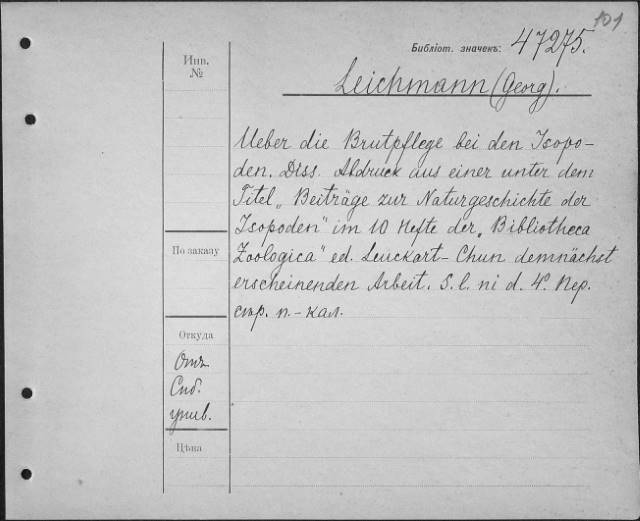 101
Библіот. значекъ: 47275.
Инв. №
Leichmann (Georg).
Ueber die Brutpflege bei den Isopo-
den. Diss. Abdruck aus einer unter dem
Titel „Beiträge zur Naturgeschichte der
Isopoden" im 10 Hefte der „Bibliotheca
Zoologica" ed. Leuckart-Chun demnächst
erscheinenden Arbeit. S. l. ni d. 4°. Пер.
стр. п.-кал.
По заказу
Откуда
Отъ
Спб.
унив.
Цѣна